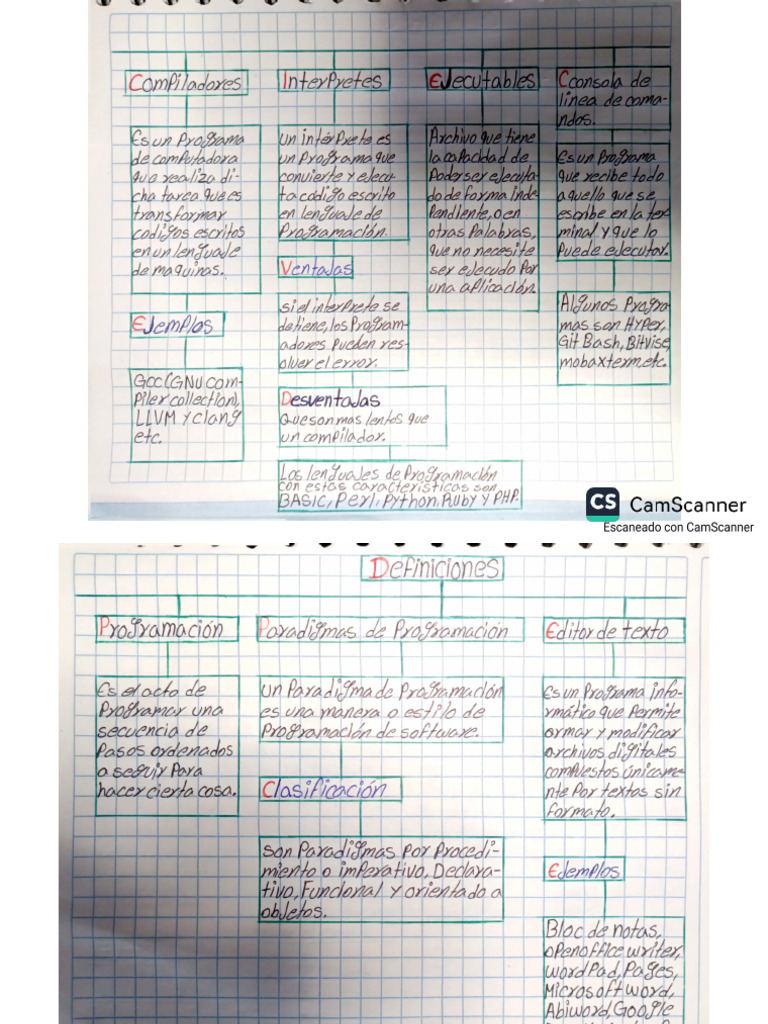 Compiladores
Es un Programa
de computadora
que realiza di-
cha tarea que es
transformar
codigos escritos
en un lenguaje
de maquinas.
Ejemplos
Gcc (GNU com-
Piler collection),
LLVM y clang
etc.
Interpretes
un intérprete es
un programa que
convierte y ejecu-
ta código escrito
en lenguaje de
Programación.
Ventajas
si el interprete se
detiene, los Program-
adores pueden res-
olver el error.
Desventajas
Que son mas lentos que
un compilador.
Los lenguajes de Programación
con estas caracteristicas son
BASIC, Perl, Python, Ruby y PHP.
Ejecutables
Archivo que tiene
la capacidad de
Poder ser ejecuta-
do de forma inde-
Pendiente, o en
otras Palabras,
que no necesite
ser ejecudo Por
una aplicación.
Cconsola de
linea de coma-
ndos.
Es un Programa
que recibe todo
aquello que se
escribe en la ter-
minal y que lo
Puede ejecutar.
Algunos Progra-
mas son Hyper,
Git Bash, Bitvise,
mobaxterm, etc.
CS CamScanner
Escaneado con CamScanner
Definiciones
Programación
Es el acto de
Programar una
secuencia de
Pasos ordenados
a seguir Para
hacer cierta cosa.
Paradigmas de Programación
un Paradigma de Programación
es una manera o estilo de
Programación de software.
Clasificación
son Paradigmas Por Procedi-
miento o imperativo, Declara-
tivo, Funcional y orientado a
objetos.
Editor de texto
Es un Programa info-
rmático que Permite
ormar y modificar
archivos digitales
compuestos únicame-
nte Por textos sin
formato.
Ejemplos
Bloc de notas,
openoffice writer,
wordPad, Pages,
Microsoft word,
Abiword, Google